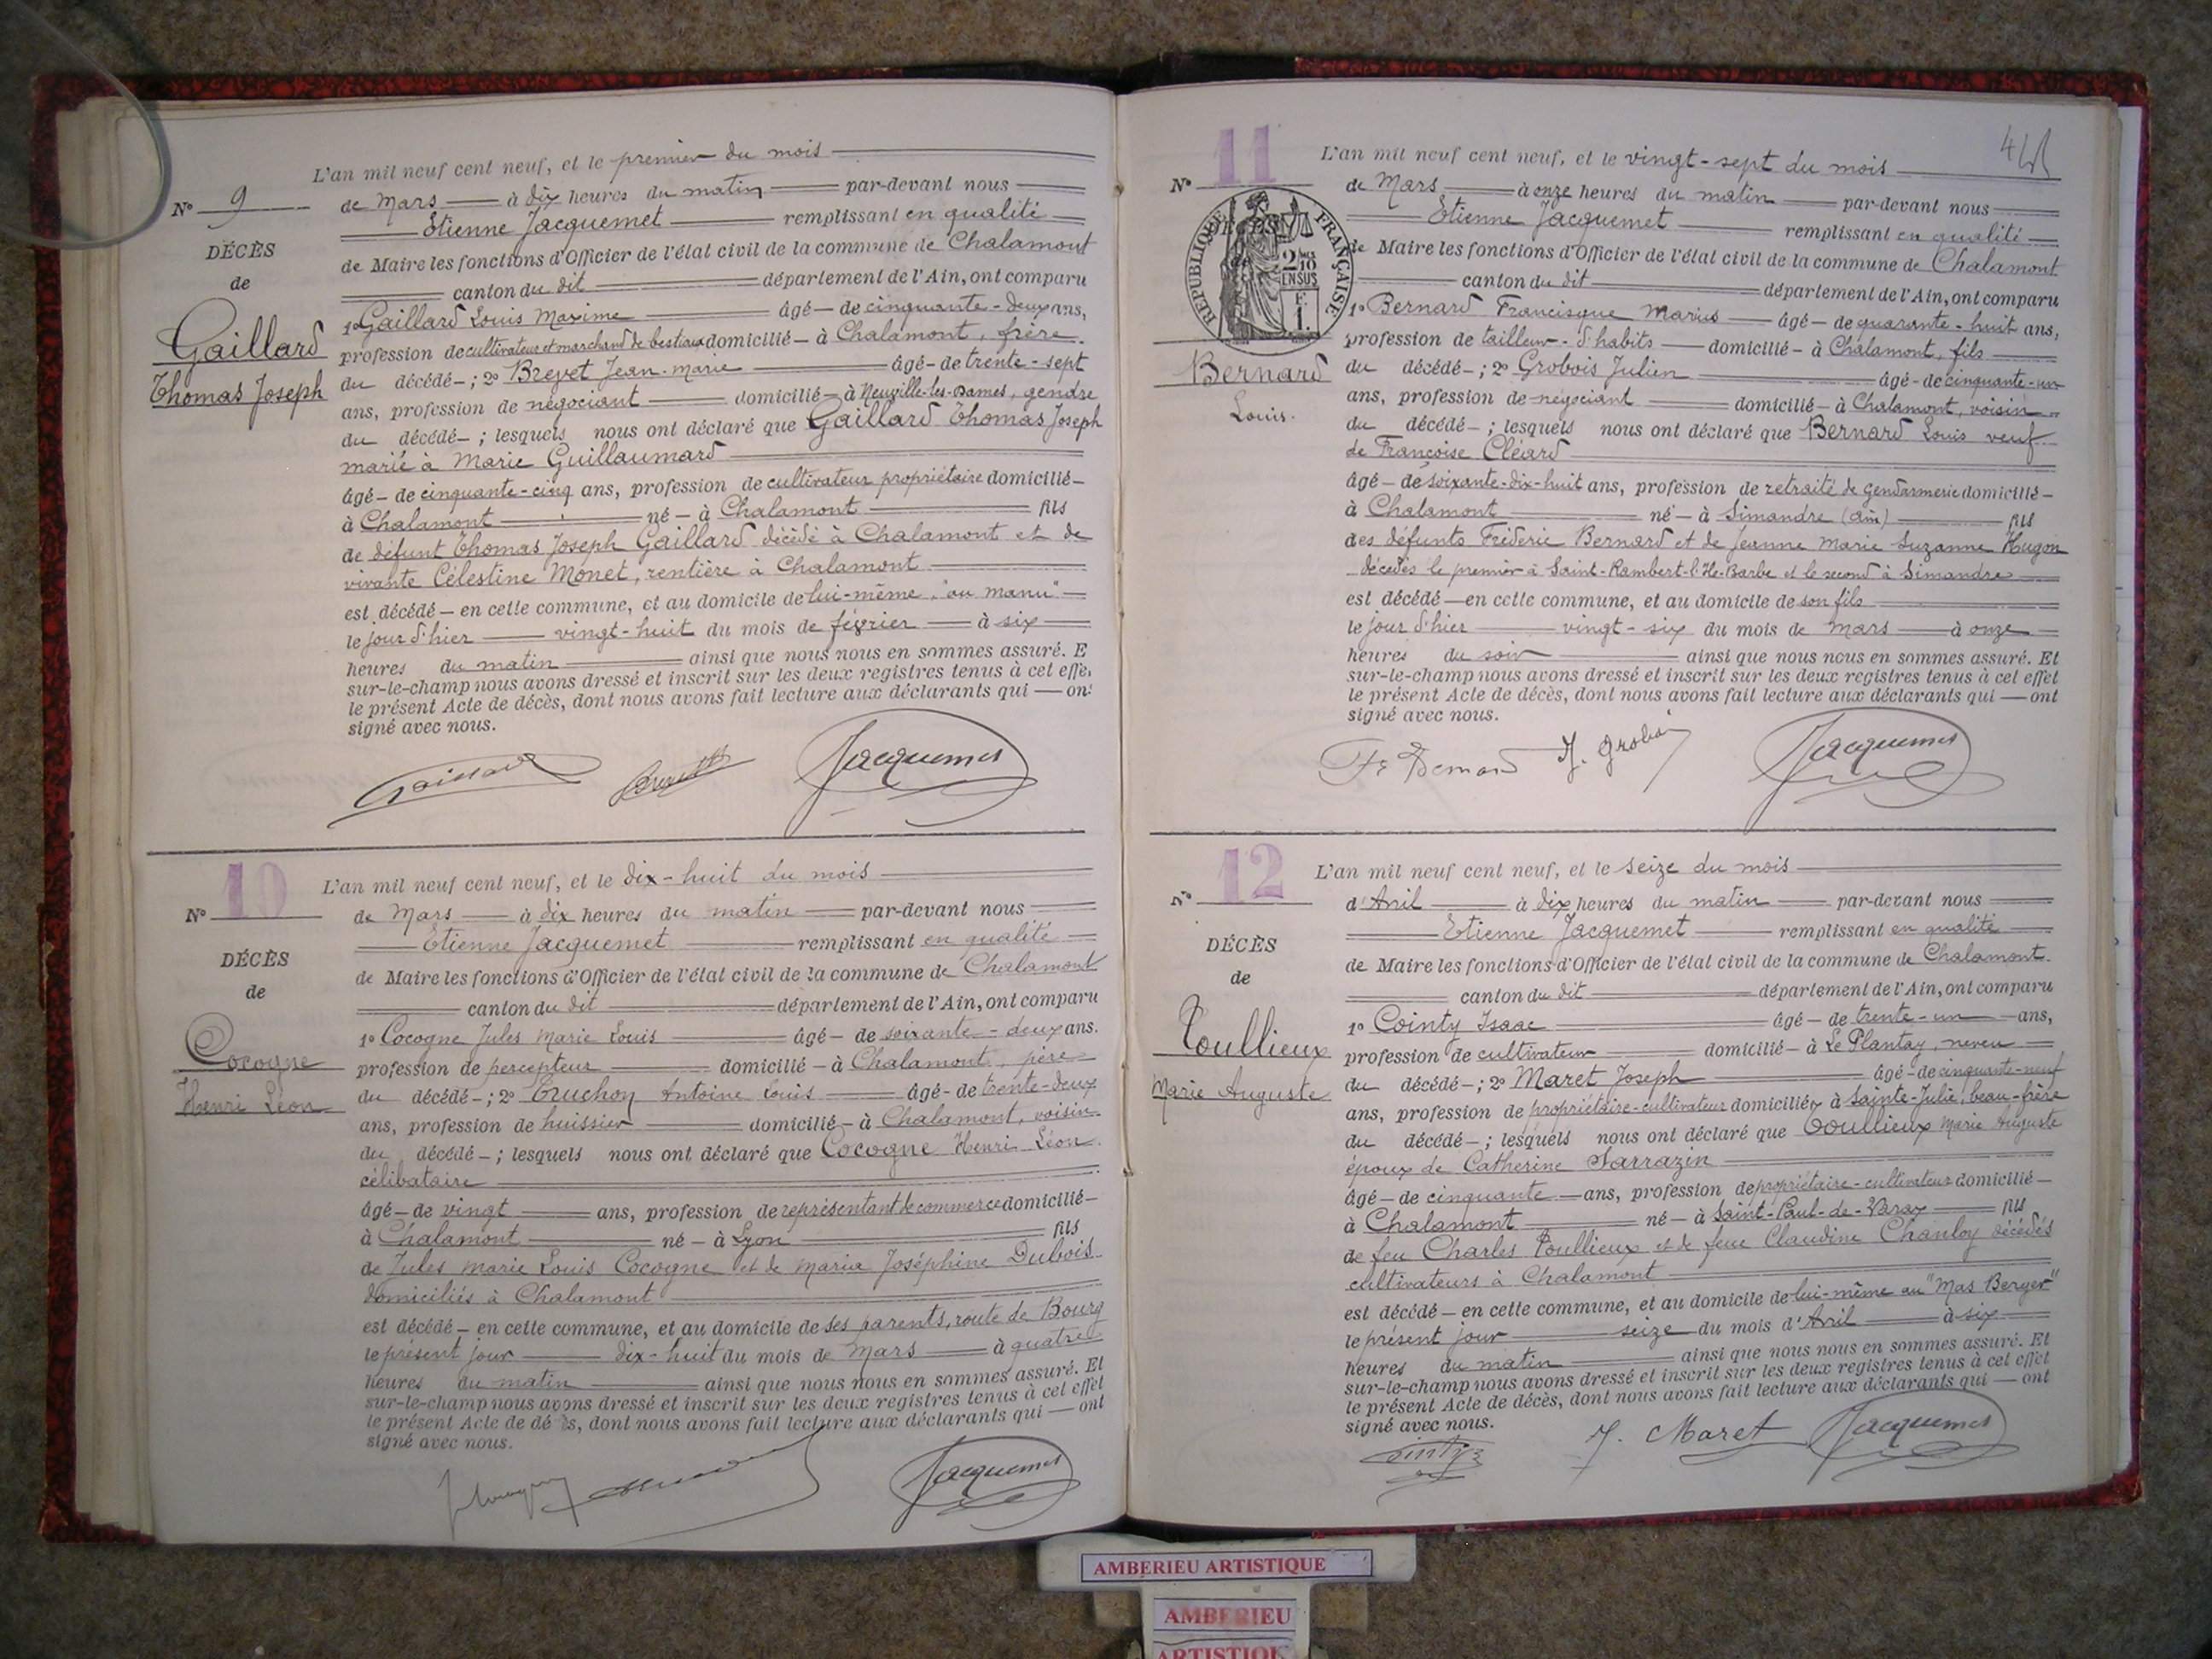 L'an mil neuf cent neuf, et le premier du mois
N° 9
de Mars à dix heures du matin par-devant nous
Etienne Jacquemet remplissant en qualité
DÉCÈS
de Maire les fonctions d'Officier de l'état civil de la commune de Chalamont
de
canton du dit département de l'Ain, ont comparu
1° Gaillard Louis Maxime âgé de cinquante-deux ans,
Gaillard
profession de cultivateur et marchand de bestiaux domicilié à Chalamont, frère
Thomas Joseph
du décédé ; 2° Breyet Jean-Marie âgé de trente-sept
ans, profession de négociant domicilié à Neuville-les-Dames, gendre
du décédé ; lesquels nous ont déclaré que Gaillard Thomas Joseph
marié à Marie Guillaumard
âgé de cinquante-cinq ans, profession de cultivateur propriétaire domicilié
à Chalamont né à Chalamont fils
de défunt Thomas Joseph Gaillard décédé à Chalamont et de
vivante Célestine Monet, rentière à Chalamont
est décédé en cette commune, et au domicile de lui-même, "au manu"
le jour d'hier vingt-huit du mois de février à six
heures du matin ainsi que nous nous en sommes assuré. E
sur-le-champ nous avons dressé et inscrit sur les deux registres tenus à cet effe
le présent Acte de décès, dont nous avons fait lecture aux déclarants qui ont
signé avec nous.
Gaillard Jacquemet
10
L'an mil neuf cent neuf, et le dix-huit du mois
N°
de Mars à dix heures du matin par-devant nous
Etienne Jacquemet remplissant en qualité
DÉCÈS
de Maire les fonctions d'Officier de l'état civil de la commune de Chalamont
de
canton du dit département de l'Ain, ont comparu
1° Cocogne Jules Marie Louis âgé de soixante-deux ans.
Cocogne
profession de percepteur domicilié à Chalamont, père
Henri Léon
du décédé ; 2° Truchon Antoine Louis âgé de trente-deux
ans, profession de huissier domicilié à Chalamont, voisin
du décédé ; lesquels nous ont déclaré que Cocogne Henri Léon
célibataire
âgé de vingt ans, profession de représentant de commerce domicilié
à Chalamont né à Lyon fils
de Jules Marie Louis Cocogne et de Maria Joséphine Dubois
domiciliés à Chalamont
est décédé en cette commune, et au domicile de ses parents, route de Bourg
le présent jour dix-huit du mois de Mars à quatre
heures du matin ainsi que nous nous en sommes assuré. Et
sur-le-champ nous avons dressé et inscrit sur les deux registres tenus à cet effet
le présent Acte de dé ès, dont nous avons fait lecture aux déclarants qui ont
signé avec nous.
Jacquemet
11
L'an mil neuf cent neuf, et le vingt-sept du mois
N°
de Mars à onze heures du matin par-devant nous
Etienne Jacquemet remplissant en qualité
RÉPUBLIQUE FRANÇAISE
de Maire les fonctions d'Officier de l'état civil de la commune de Chalamont
canton du dit département de l'Ain, ont comparu
1° Bernard Francisque Marius âgé de quarante-huit ans,
profession de tailleur-d'habits domicilié à Chalamont, fils
Bernard
Louis.
du décédé ; 2° Grobois Julien âgé de cinquante-un
ans, profession de négociant domicilié à Chalamont, voisin
du décédé ; lesquels nous ont déclaré que Bernard Louis veuf
de Françoise Cléard
âgé de soixante-dix-huit ans, profession de retraité de gendarmerie domicilié
à Chalamont né à Simandre (ain) fils
des défunts Fréderic Bernard et de Jeanne Marie Suzanne Hugon
décédés le premier à Saint-Rambert-l'Ile-Barbe et le second à Simandre
est décédé en cette commune, et au domicile de son fils
le jour d'hier vingt-six du mois de Mars à onze
heures du soir ainsi que nous nous en sommes assuré. Et
sur-le-champ nous avons dressé et inscrit sur les deux registres tenus à cet effet
le présent Acte de décès, dont nous avons fait lecture aux déclarants qui ont
signé avec nous.
Fs Bernard J. Grobois Jacquemet
12
L'an mil neuf cent neuf, et le seize du mois
N°
d'Avril à dix heures du matin par-devant nous
Etienne Jacquemet remplissant en qualité
DÉCÈS
de Maire les fonctions d'Officier de l'état civil de la commune de Chalamont
de
canton du dit département de l'Ain, ont comparu
1° Cointy Isaac âgé de trente-un ans,
Toullieux
profession de cultivateur domicilié à Le Plantay, neveu
Marie Auguste
du décédé ; 2° Maret Joseph âgé de cinquante-neuf
ans, profession de propriétaire-cultivateur domicilié à Sainte-Julie, beau-frère
du décédé ; lesquels nous ont déclaré que Toullieux Marie Auguste
époux de Catherine Sarrazin
âgé de cinquante ans, profession de propriétaire-cultivateur domicilié
à Chalamont né à Saint-Paul-de-Varax fils
de feu Charles Toullieux et de feue Claudine Chanloy décédés
cultivateurs à Chalamont
est décédé en cette commune, et au domicile de lui-même au "Mas Berger"
le présent jour seize du mois d'Avril à six
heures du matin ainsi que nous nous en sommes assuré. Et
sur-le-champ nous avons dressé et inscrit sur les deux registres tenus à cet effet
le présent Acte de décès, dont nous avons fait lecture aux déclarants qui ont
signé avec nous.
Cointy J. Maret Jacquemet
AMBERIEU ARTISTIQUE
AMBERIEU
ARTISTIQU